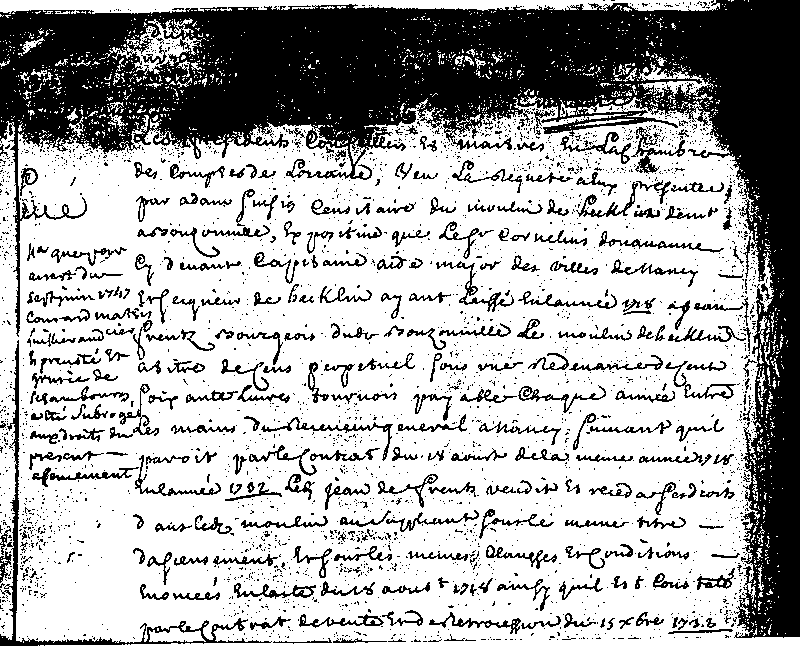 Les presidents Conseillers Et maistres En La Chambre
des Comptes de Lorraine, Veu La Requete a Eux presentée,
par adam Censitaire du moulin de hecklin demt
a Bouzonville, Expositive que Le Sr Cornelius douauanne
Cy devant Capitaine aide major des villes de Nancy
Et seigneur de hecklin ayant Laissé En Lannée 1718 a jean
frentz Bourgeois dudt Bouzonville Le moulin de hecklin
a titre de Cens perpetuel sous une Redevance de Cent
soixante Livres tournois payable Chaque année Entre
Les mains du Receveur general a Nancy, suivant quil
paroit par le Contrat du 18 aoust de la meme année 1718
En Lannée 1732 Led. jean de frentz vendit Et ceda ses droits
dans led. moulin au suppliant sous le meme titre
dascensement, Et sous les memes Charges Et Conditions
Enoncées En Lacte du 18 aoust 1718 ainsy quil Est Constaté
par le Contrat de vente Et de Retrocession du 15 xbre 1732
Na que par
arrest du
sept juin 1747
Conrard
prevosté Et
grurie de
schambourg,
a été subrogé
aux droits du
present
ascensement